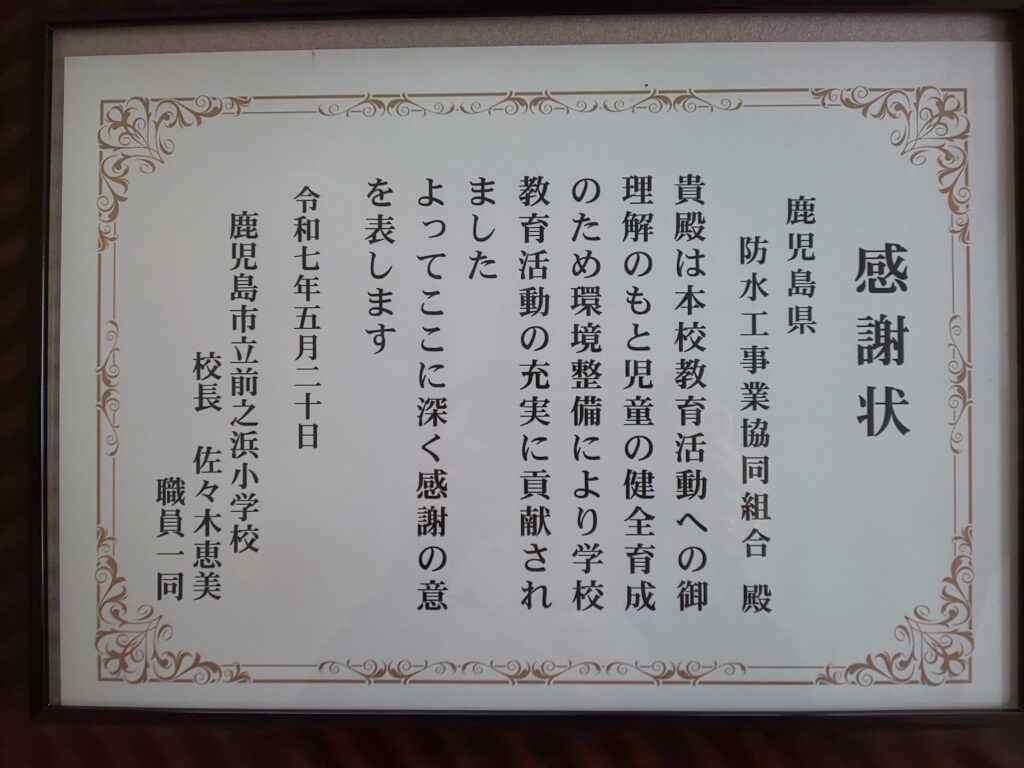 感謝状
鹿児島県
防水工事業協同組合 殿
貴殿は本校教育活動への御
理解のもと児童の健全育成
のため環境整備により学校
教育活動の充実に貢献され
ました
よってここに深く感謝の意
を表します
令和七年五月二十日
鹿児島市立前之浜小学校
校長 佐々木恵美
職員一同